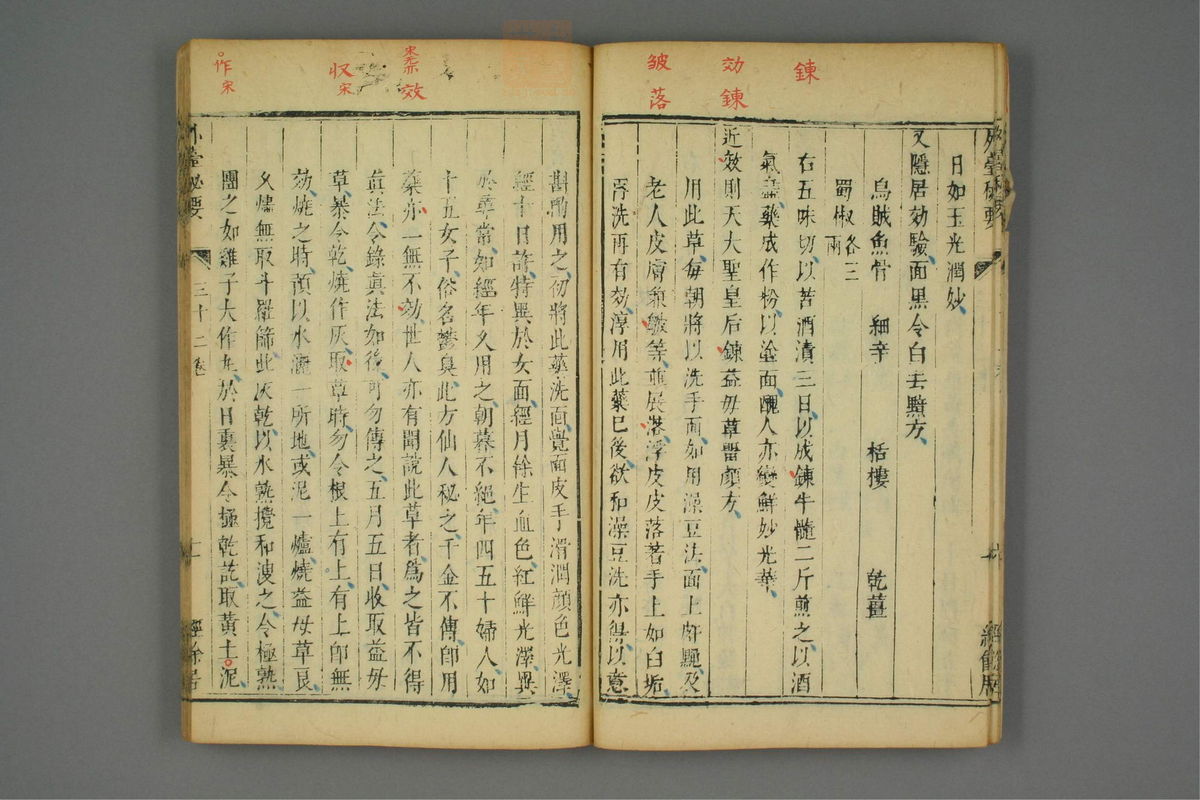 鍊
効
鍊
皴
落
日如玉光潤妙
又隱居効驗面黑令白去䵟方
烏賊魚骨 細辛 栝樓 乾薑
蜀椒各三兩
右五味切以苦酒漬三日以成鍊牛髓二斤煎之以酒
氣盡藥成作粉以塗面醜人亦變鮮妙光華
近效則天大聖皇后鍊益毋草留顏方
用此草每朝將以洗手面如用澡豆法面上䵟及
老人皮膚兼皺等並展落浮皮皮落著手上如白垢
再洗再有効淳用此藥已後欲和澡豆洗亦得以意
斟酌用之初將此藥洗面覺面皮手滑潤顏色光澤
經十日許特異於女面經月餘生血色紅鮮光澤異
於尋常如經年久用之朝暮不絕年四五十婦人如
十五女子俗名鬱臭此方仙人秘之千金不傳即用
藥亦一無不効世人亦有聞說此草者爲之皆不得
真法今錄真法如後可勿傳之五月五日收取益毋
草暴令乾燒作灰取草時勿令根上有土有土即無
効燒之時預以水灑一所地或泥一爐燒益毋草良
久燼無取斗羅篩此灰乾以水熟攪和溲之令極熟
團之如雞子大作丸於日裏暴令極乾訖取黃土泥
宋
效
收
宋
作
宋
外臺秘要
三十二卷
經餘居